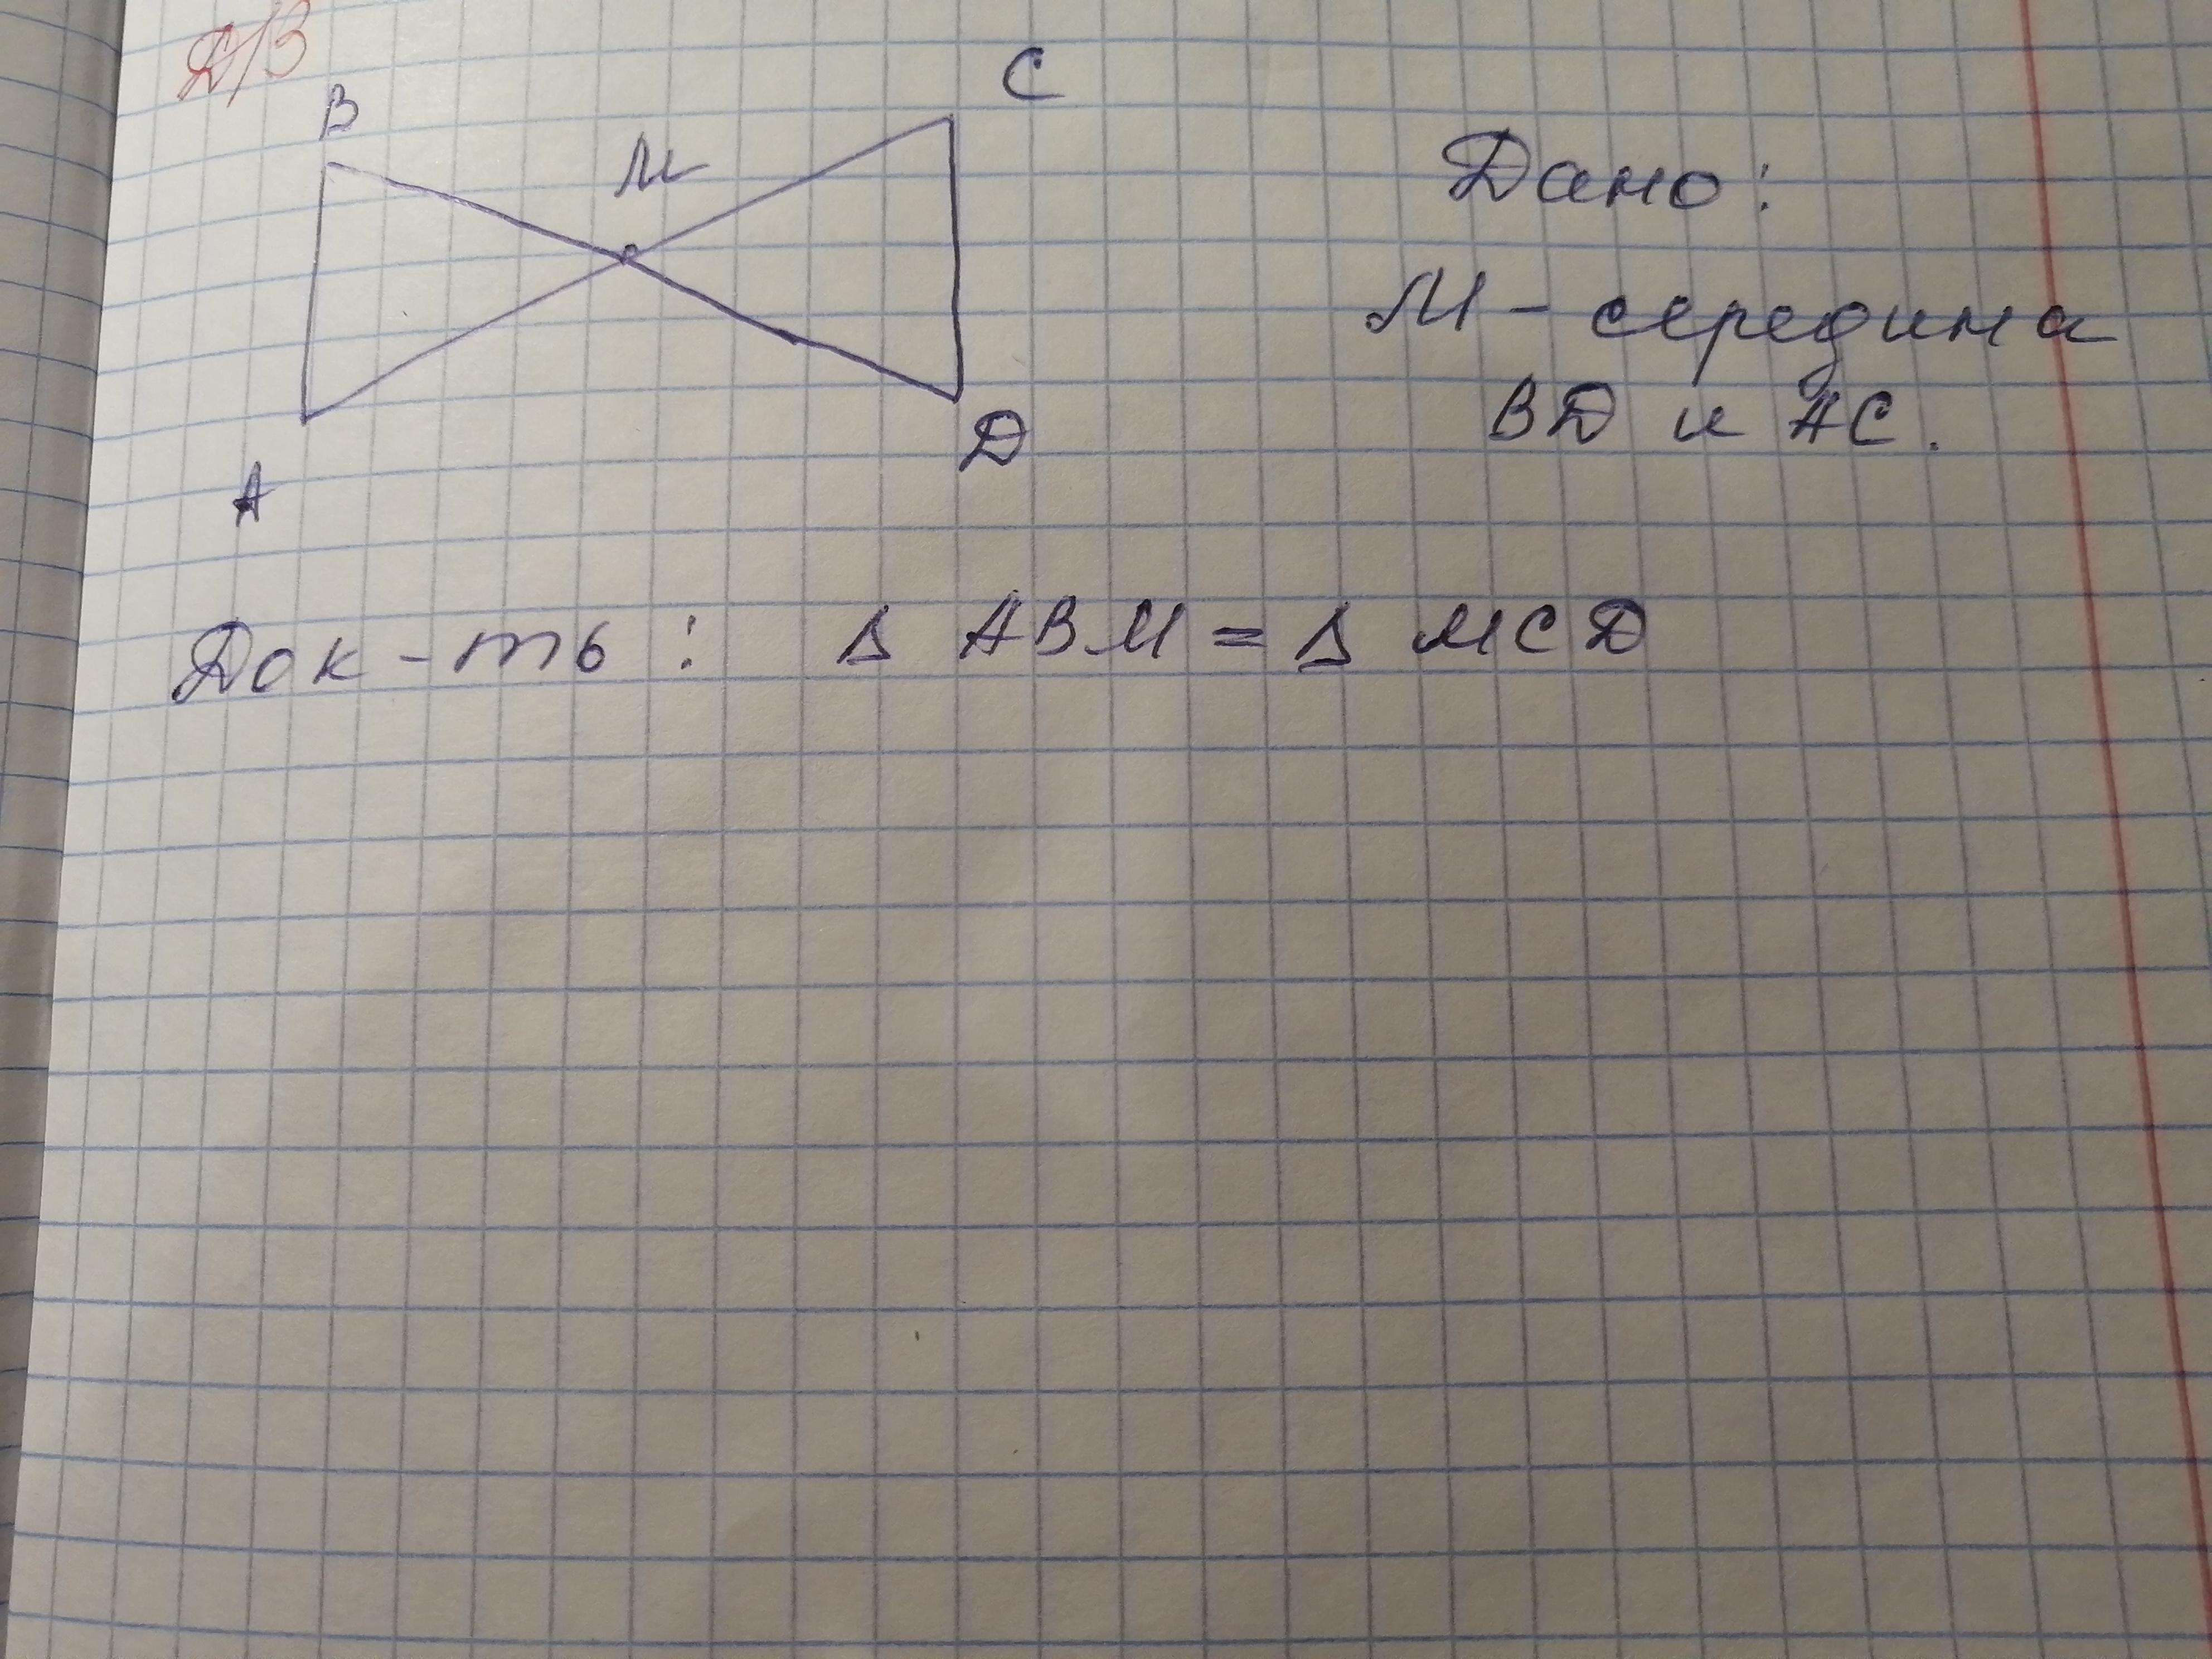 Д/З
B
C
M
Дано:
M - середина
BD и AC.
D
A
Док-ть: Δ ABM = Δ MCD